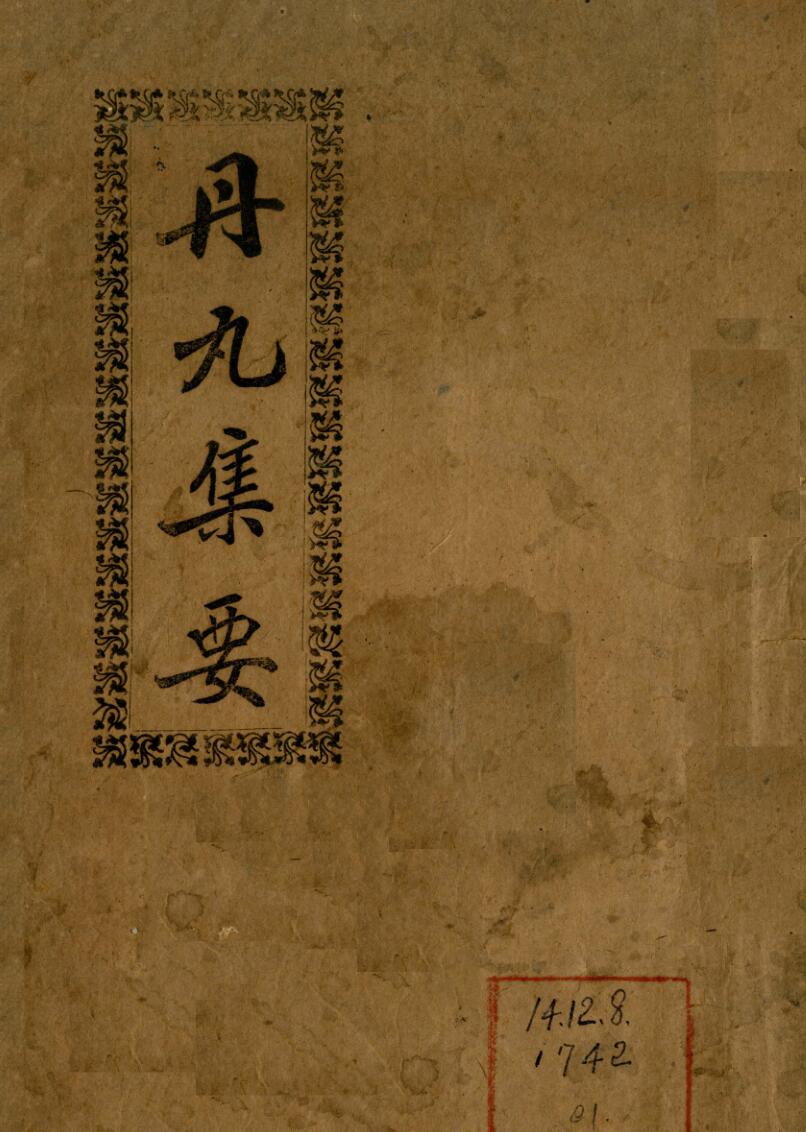 丹丸集要
14.12.8.
1742
01.